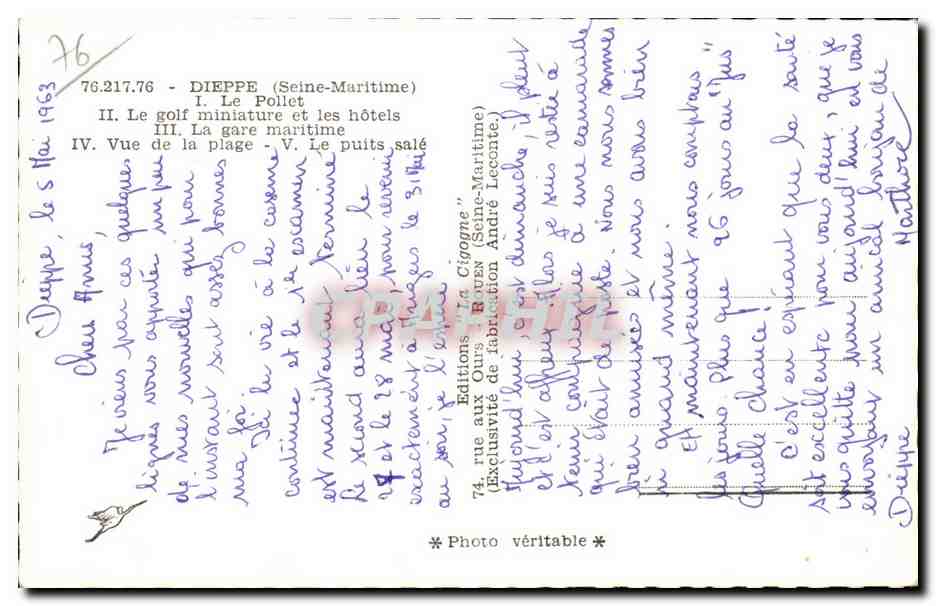 76
76.217.76 - DIEPPE (Seine-Maritime)
I. Le Pollet
II. Le golf miniature et les hôtels
III. La gare maritime
IV. Vue de la plage - V. Le puits salé
Dieppe, le 5 Mai 1963
Chers Amis,
Je viens par ces quelques
lignes vous apporter un peu
de mes nouvelles qui pour
l'instant sont assez bonnes
ma foi.
Ici la vie à la caserne
continue et le 1er examen
est maintenant terminé
Le second aura lieu le
27 et le 28 mai, pour revenir
exactement à le 31 Mai
au soir, je l'espère.
Editions "La Cigogne"
74, rue aux Ours - ROUEN (Seine-Maritime)
(Exclusivité de fabrication André Leconte.)
Aujourd'hui, c'est dimanche, il pleut
et c'est affreux. Alors je suis resté à
tenir compagnie à une camarade
qui était de poste. Nous nous sommes
bien amusés et nous avons bien
ri quand même.
Et maintenant nous comptons
les jours. Plus que 26 jours au "jus"
Quelle chance!
C'est en espérant que la santé
soit excellente pour vous deux, que je
vous quitte pour aujourd'hui en vous
envoyant un amical bonjour de
Dieppe
CPAPHIL
* Photo véritable *